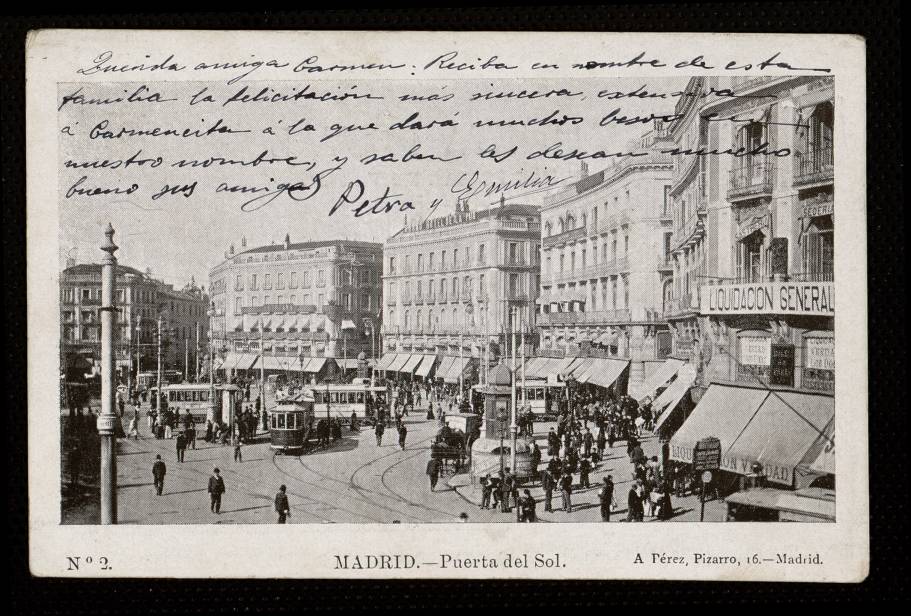 Querida amiga Carmen: Reciba en nombre de esta
familia la felicitación más sincera, extensiva
á Carmencita á la que dará muchos besos en
nuestro nombre, y saben les desean mucho
bueno sus amigas
Petra y Emilia
LIQUIDACION GENERAL
LIQUIDACION VERDAD
Nº 2.
MADRID.—Puerta del Sol.
A Pérez, Pizarro, 16.—Madrid.